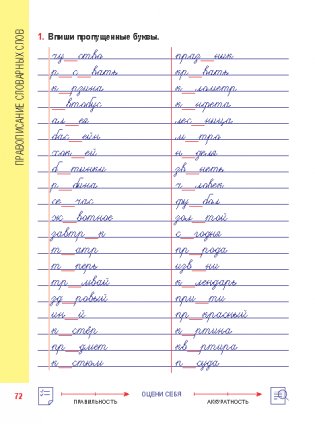 ПРАВОПИСАНИЕ СЛОВАРНЫХ СЛОВ
1. Впиши пропущенные буквы.
чу__ство праз__ник
р__с__вать кр__вать
к__рзина к__лометр
__втобус к__нфета
ал__ея лес__ница
бас__ейн м__тро
хок__ей н__деля
б__тинки зв__неть
р__бина ч__ловек
се__час фу__бол
ж__вотное зол__той
завтр__к с__годня
т__атр пр__рода
т__перь изв__ни
тр__мвай к__лендарь
зд__ровый при__ти
ин__й пр__красный
к__стёр к__ртина
пр__дмет кв__ртира
к__стюм п__суда
72 ПРАВИЛЬНОСТЬ ОЦЕНИ СЕБЯ АККУРАТНОСТЬ